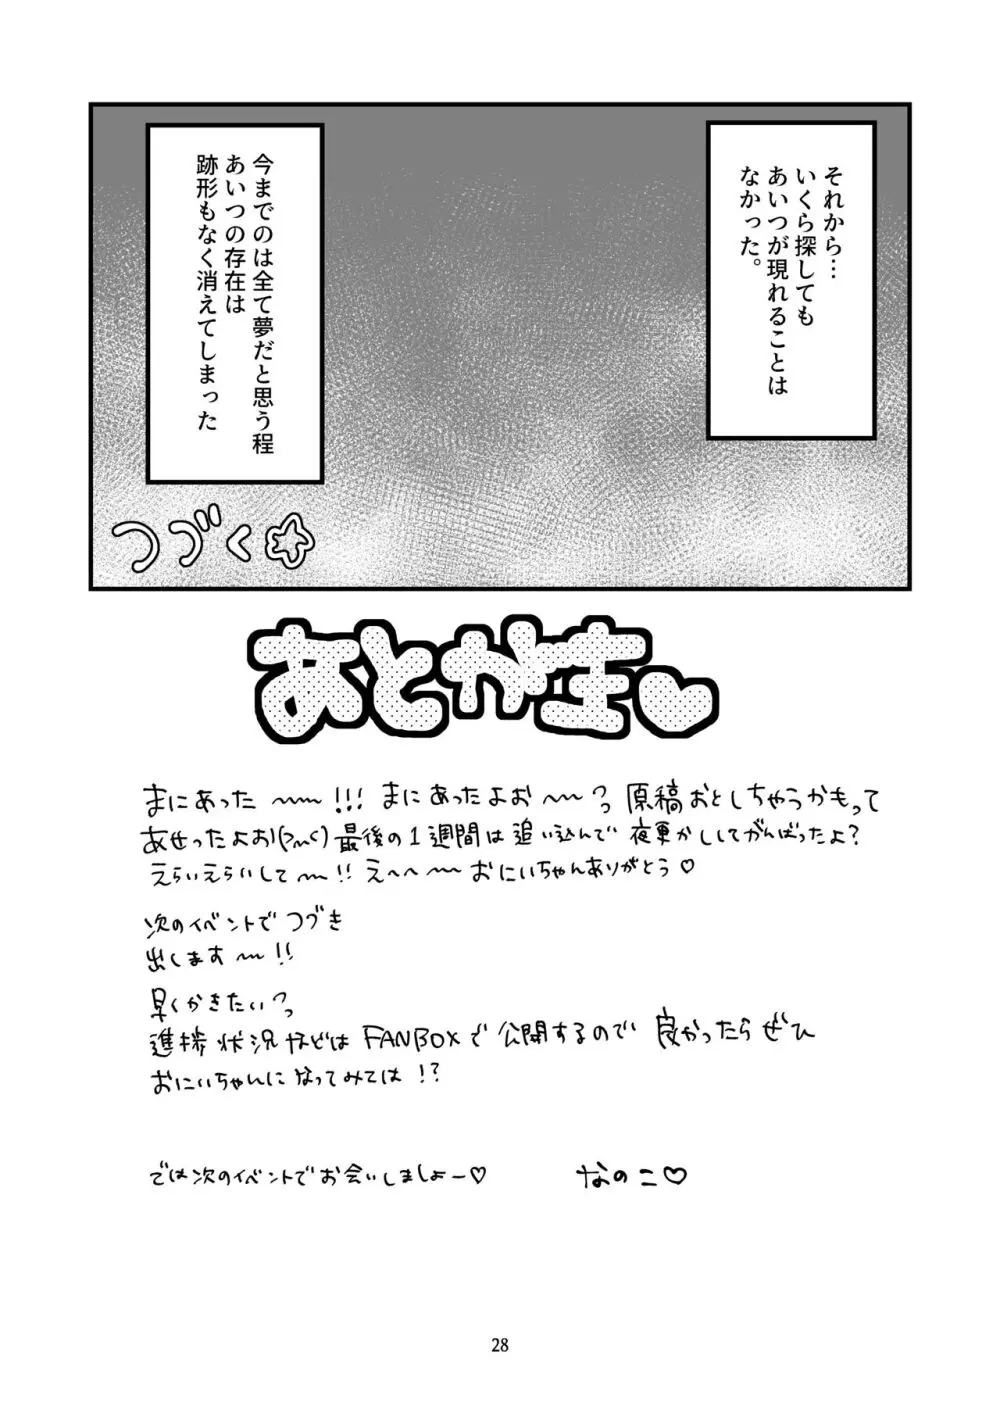 それから…
いくら探しても
あいつが現れることは
なかった。
今までのは全て夢だと思う程
あいつの存在は
跡形もなく消えてしまった
つづく☆
あとがき♥
まにあった〜〜!!! まにあったよお〜〜っ 原稿おとしちゃうかもって
あせったよお!(っ﹏<) 最後の1週間は追い込んで 夜更かししてがんばったよ?
えらいえらいして〜!! えへへ〜 おにいちゃんありがとう♡
次のイベントでつづき
出します〜!!
早くかきたいっ
進捗状況などはFANBOXで公開するので 良かったらぜひ
おにいちゃんになってみては!?
では次のイベントでお会いしましょー♡
なのこ♡
28